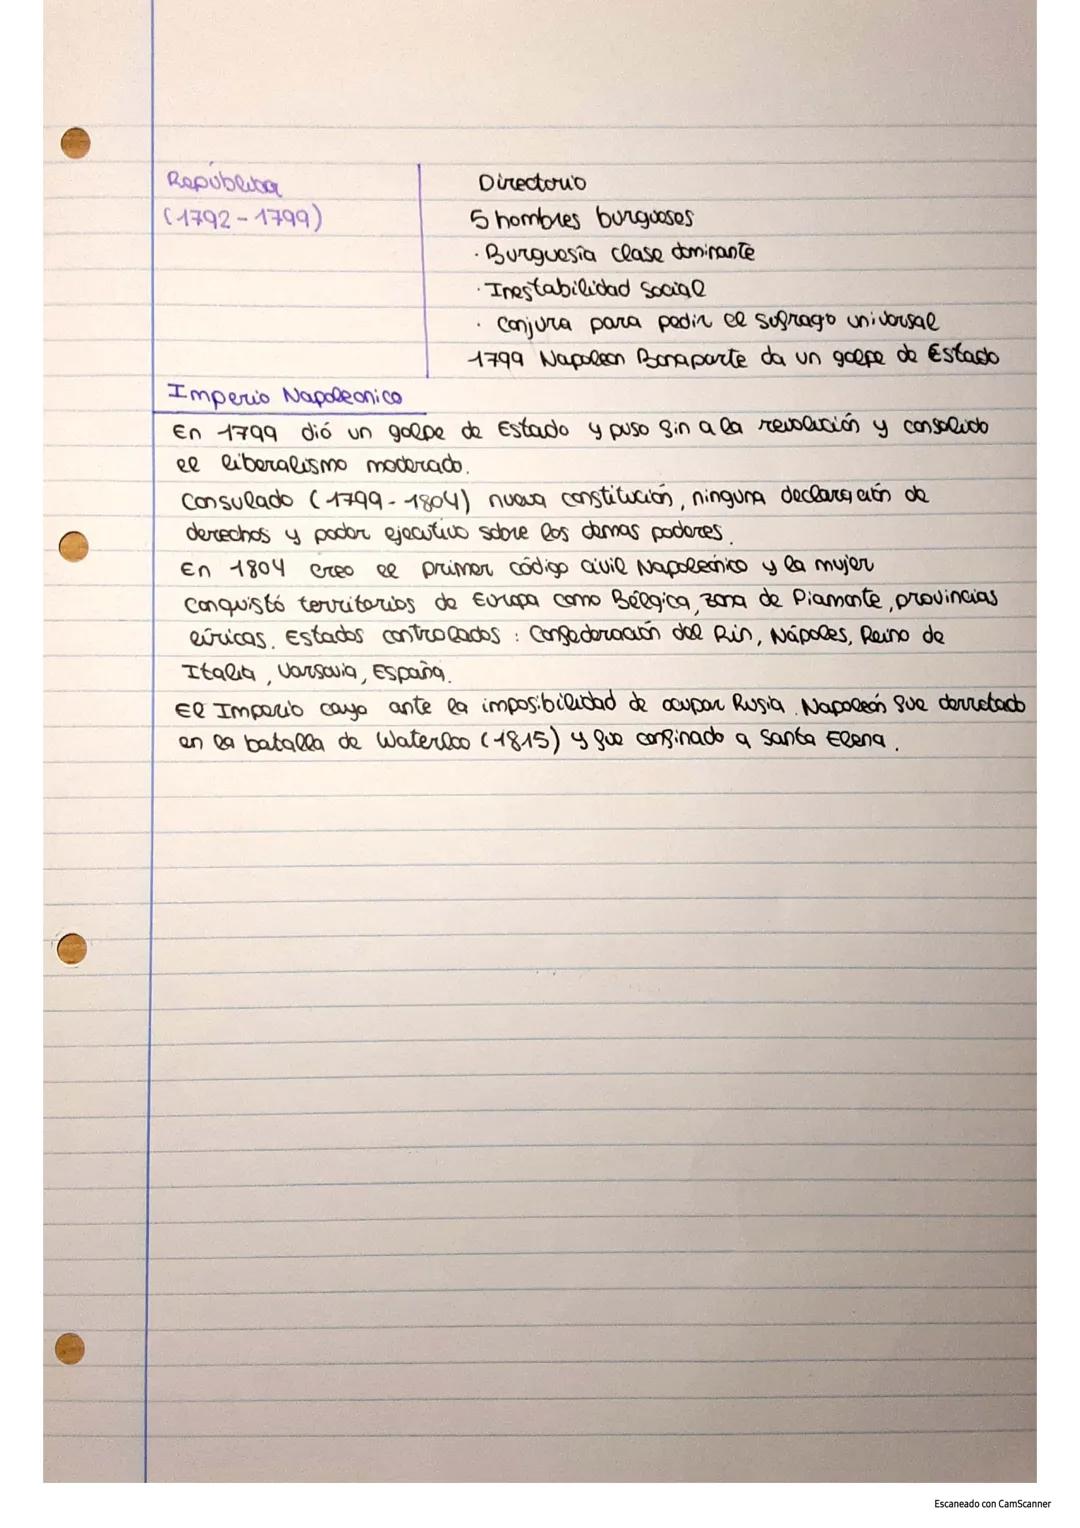 República
(1792-1799)
Directorio
5 hombres burgueses
· Burguesía clase dominante
· Inestabilidad social
· Conjura para pedir el sufrago universal
1799 Napoleon Bonaparte da un golpe de Estado
Imperio Napoleonico
En 1799 dió un golpe de Estado y puso fin a la revolución y consolido
el liberalismo moderado.
Consulado (1799-1804) nueva constitución, ninguna declaración de
derechos y poder ejecutivo sobre los demas poderes.
En 1804 creo el primer código civil Napoleónico y la mujer
Conquistó territorios de Europa como Bélgica, zona de Piamonte, provincias
ilíricas. Estados controlados : Confederación del Rin, Nápoles, Reino de
Italia, Varsovia, España.
El Imperio cayo ante la imposibilidad de ocupar Rusia. Napoleón fue derrotado
en la batalla de Waterloo (1815) y fue confinado a Santa Elena.
Escaneado con CamScanner